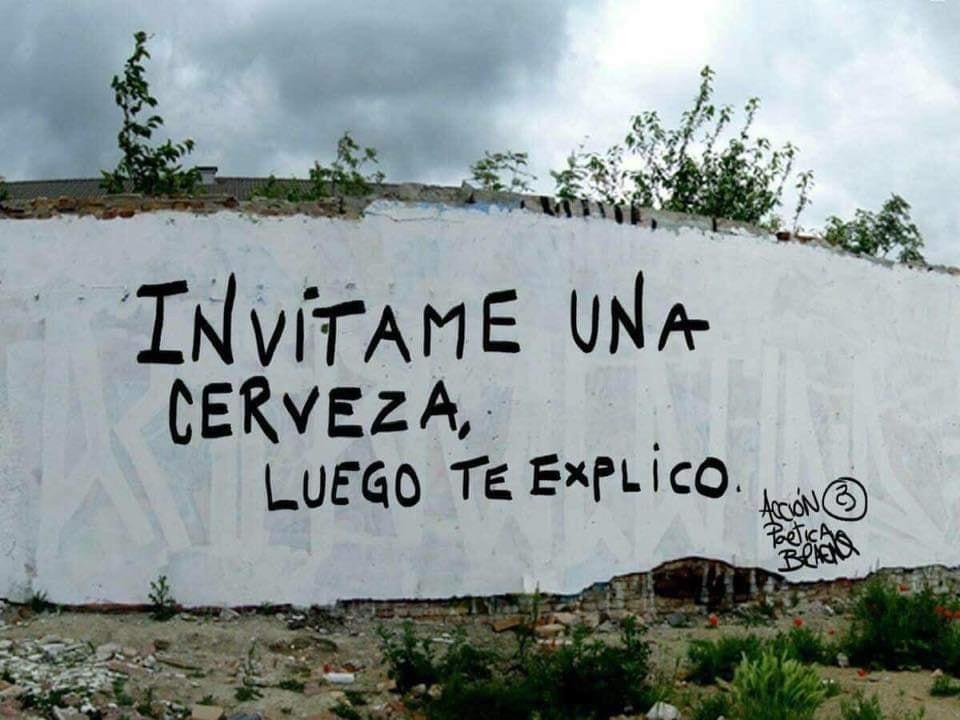 INVITAME UNA
CERVEZA,
LUEGO TE EXPLICO.
ACCIÓN
PoéticA